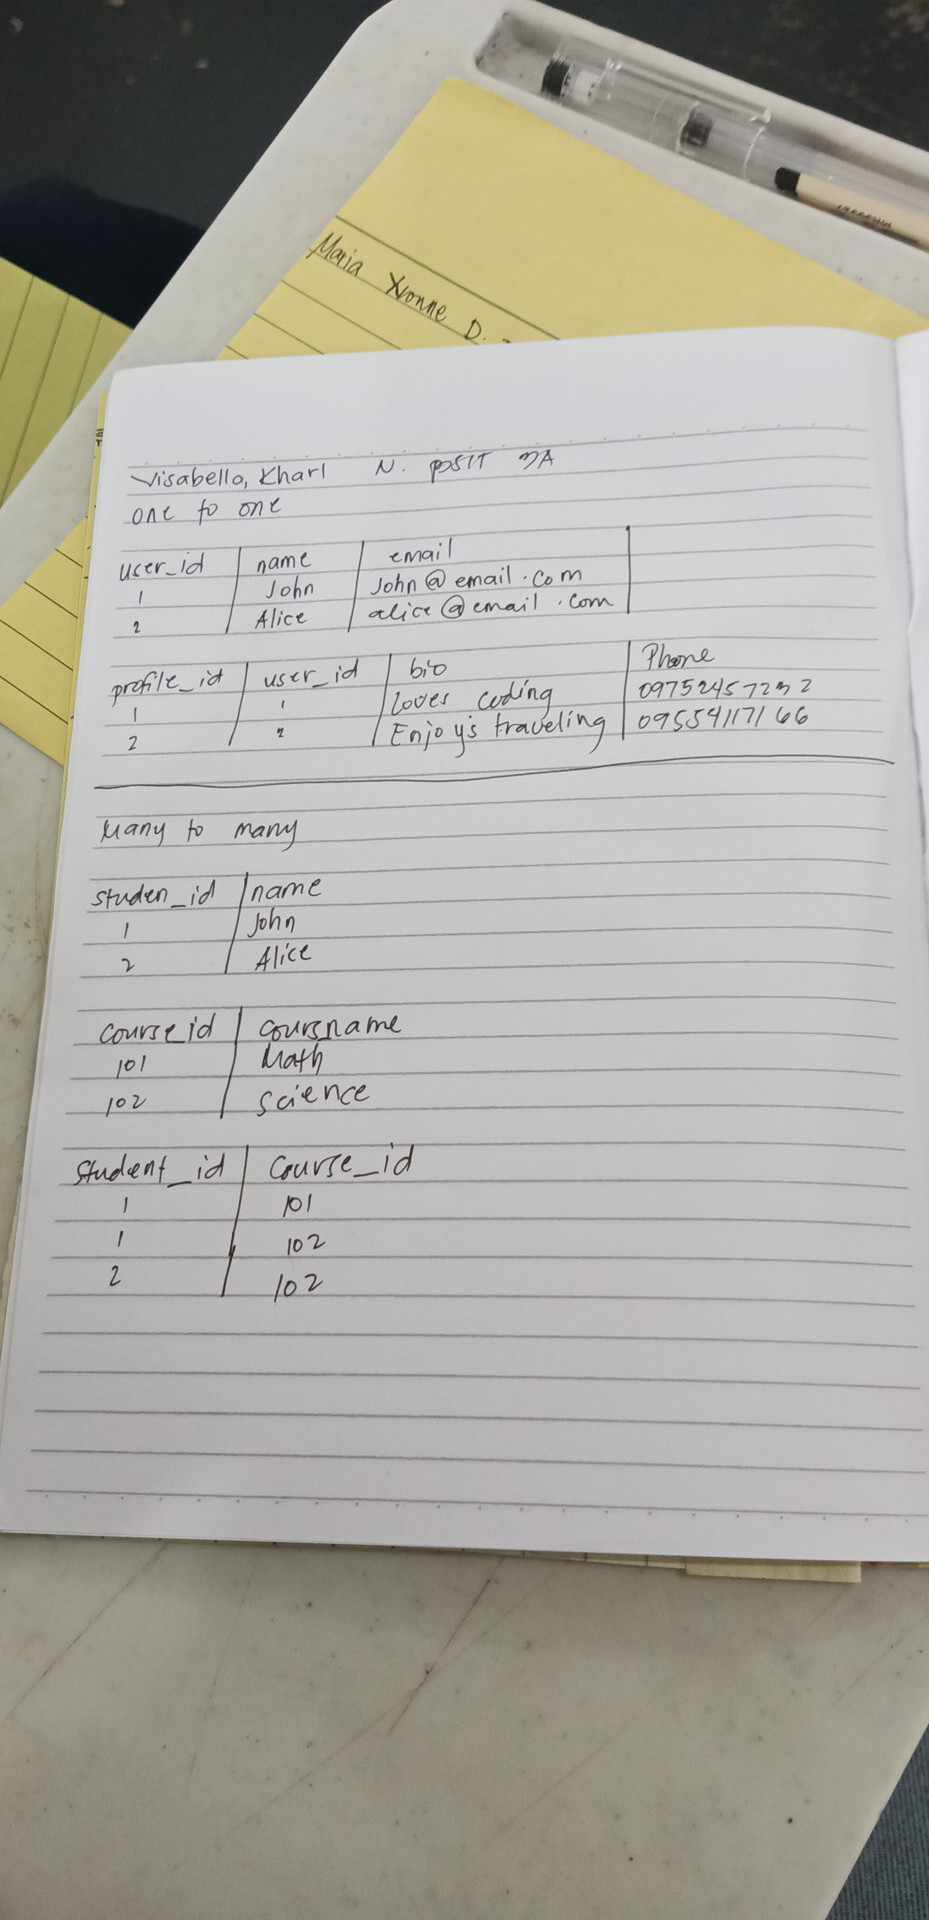 Maria Yvonne D.
Visabella, Kharl N. BSIT 3A
one to one
user_id name email
1 John John@email.com
2 Alice alice@email.com
profile_id user_id bio Phone
1 1 Loves coding 09752457232
2 2 Enjoys traveling 09554117166
Many to many
studen_id name
1 John
2 Alice
course_id coursname
101 Math
102 Science
Student_id Course_id
1 101
1 102
2 102